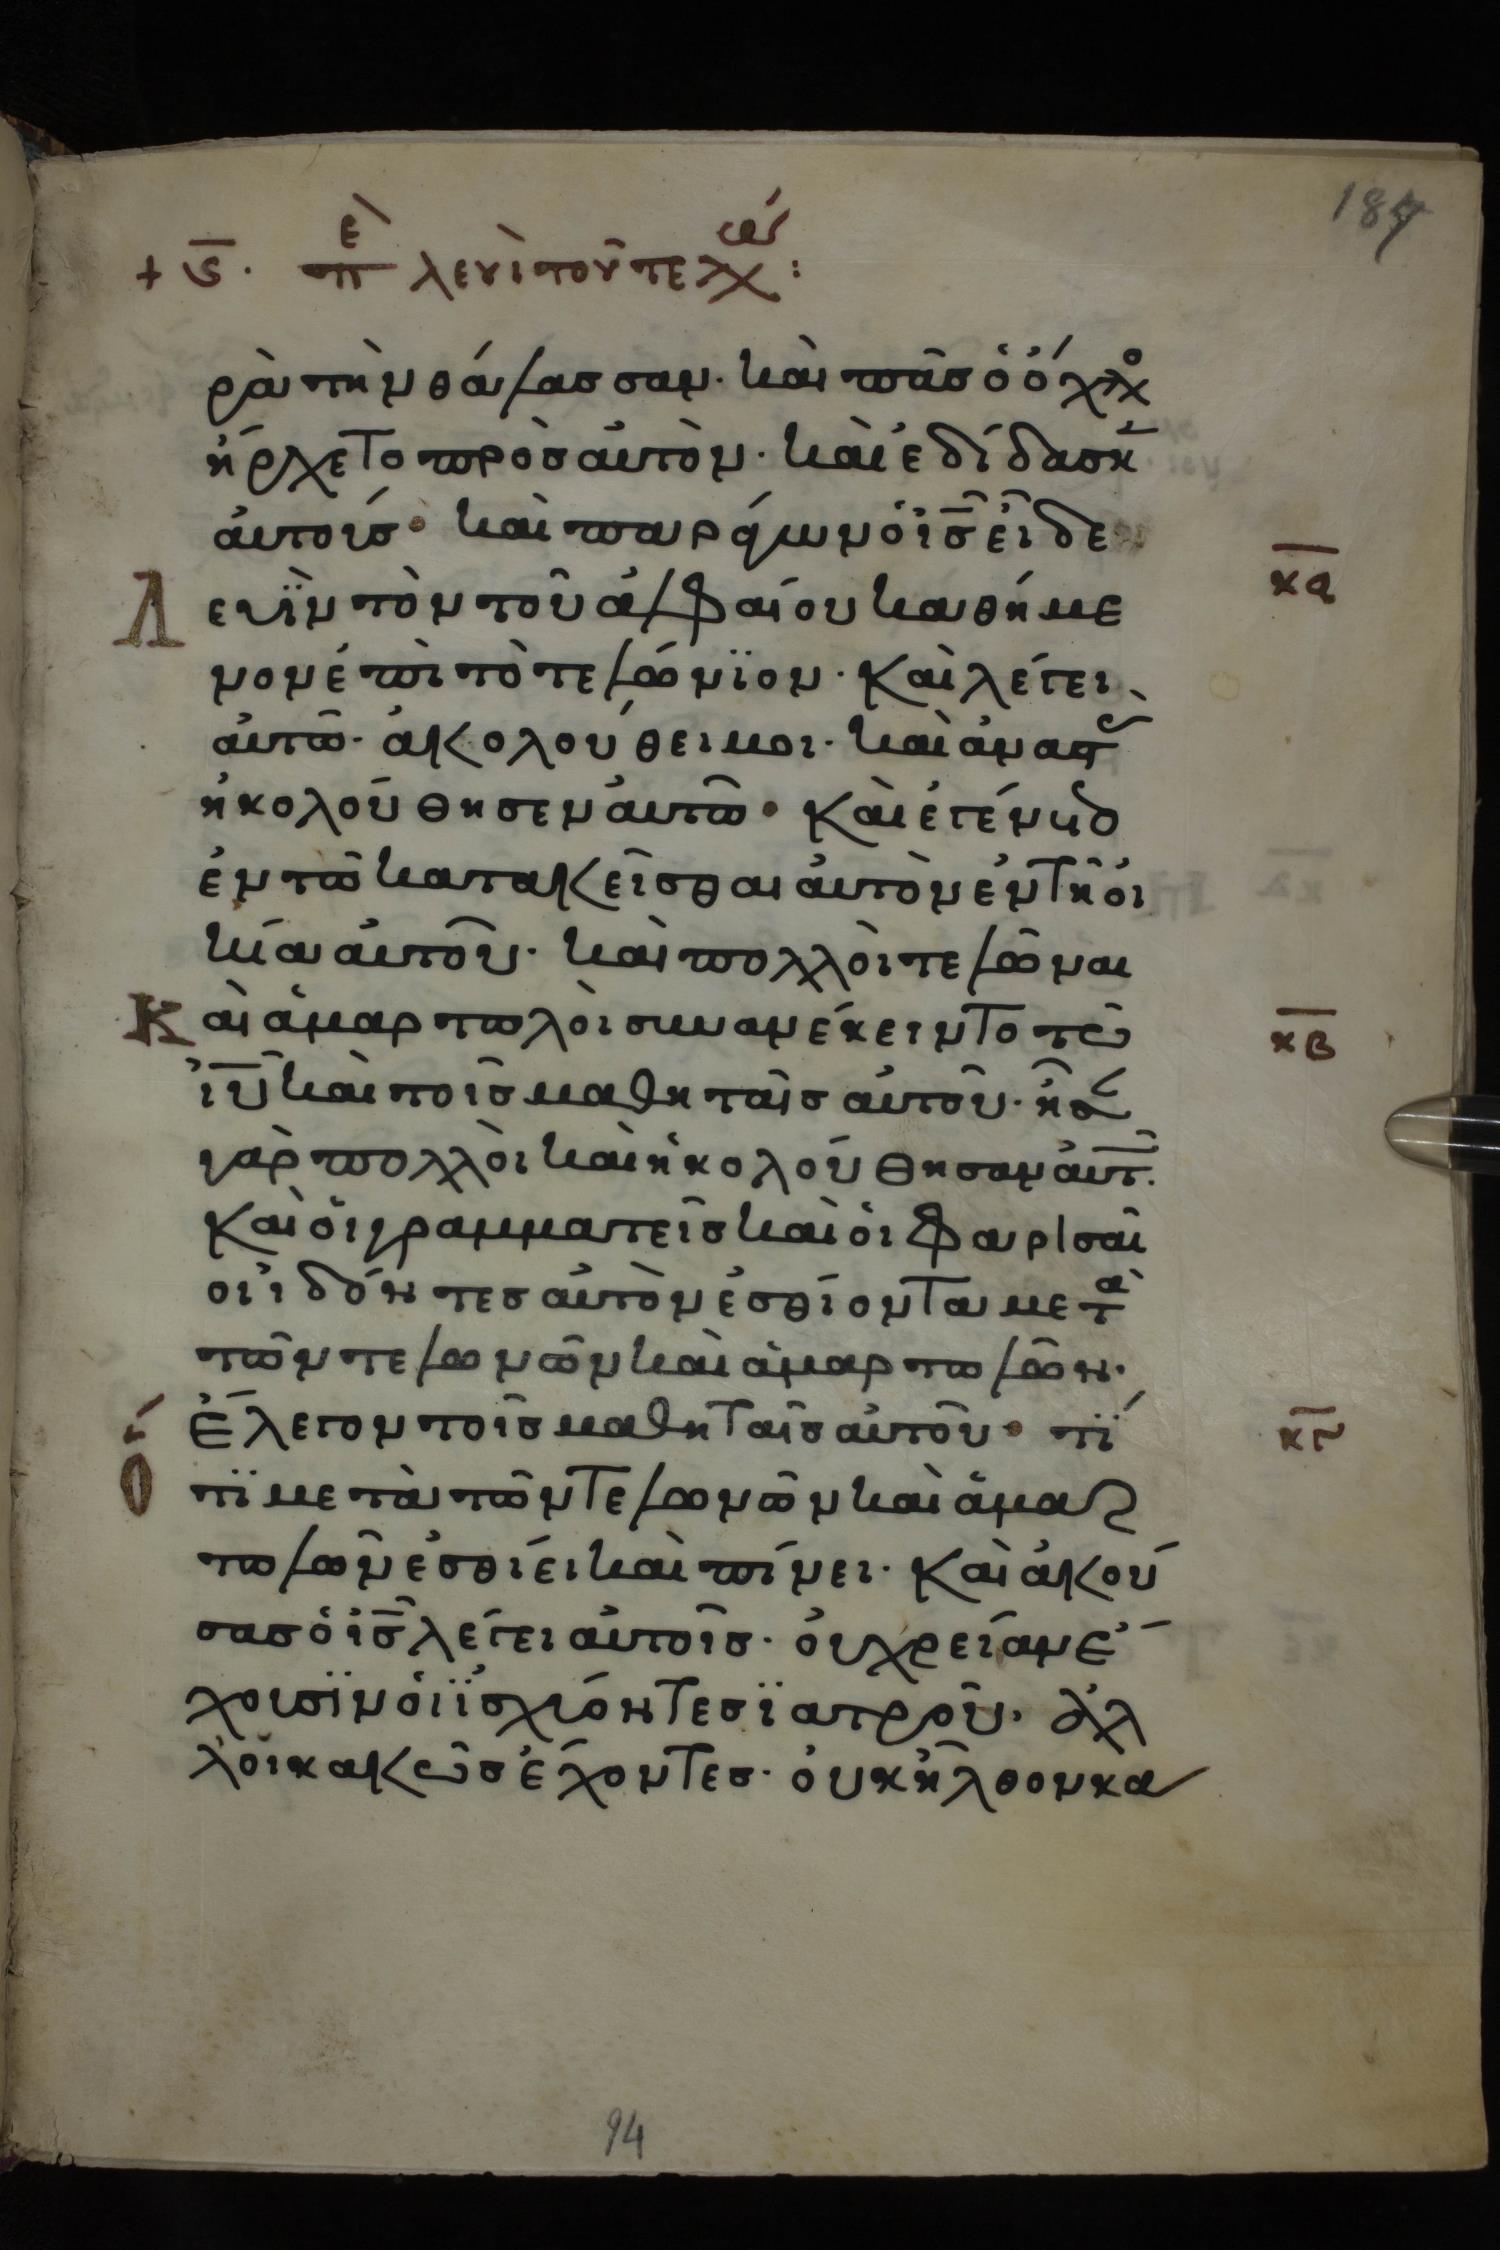 187
+ ϛ̅. πε λευὶ τοῦ τελώ̅χ :
ρὰ τὴν θάλασσαν· καὶ πᾶσ ὁ ὄχλο
ἤρχετο πρὸσ αὐτὸν· καὶ ἐδίδασκ
αὐτούσ· καὶ παράγων ὁ ι̅σ̅ εἶδε
Λευῒν τὸν τοῦ ἀλφαίου καθήμε κα̅
νον ἐπὶ τὸ τελώνϊον· καὶ λέγει
αὐτῶ· ἀκολούθει μοι· καὶ ἀναστ
ἠκολούθησεν αὐτῶ· καὶ ἐγένετο
ἐν τῶ κατακεῖσθαι αὐτὸν ἐν τῆ οἰ
κία αὐτοῦ· καὶ πολλοὶ τελῶναι
Καὶ ἁμαρτωλοὶ συνανέκειντο τῶ κβ̅
ι̅υ̅ καὶ τοῖσ μαθηταῖσ αὐτοῦ· ἦσ
γὰρ πολλοὶ καὶ ἠκολούθησαν αὐτ.
καὶ οἱ γραμματεῖσ καὶ οἱ φαρισαῖ
οι ἰδόντεσ αὐτὸν ἐσθίοντα μετὰ
τῶν τελωνῶν καὶ ἁμαρτωλῶν·
ἔλεγον τοῖσ μαθηταῖσ αὐτοῦ· τί κγ̅
Ὅτϊ μετὰ τῶν τελωνῶν καὶ ἁμαρ
τωλῶν ἐσθίει καὶ πίνει· καὶ ἀκού
σασ ὁ ι̅σ̅ λέγει αὐτοῖσ· οὐ χρείαν ἔ
χουσϊν οἱ ϊσχύοντεσ ϊατροῦ· ἀλ
λ οι κακῶσ ἔχοντεσ· οὐκ ἦλθον κα
94